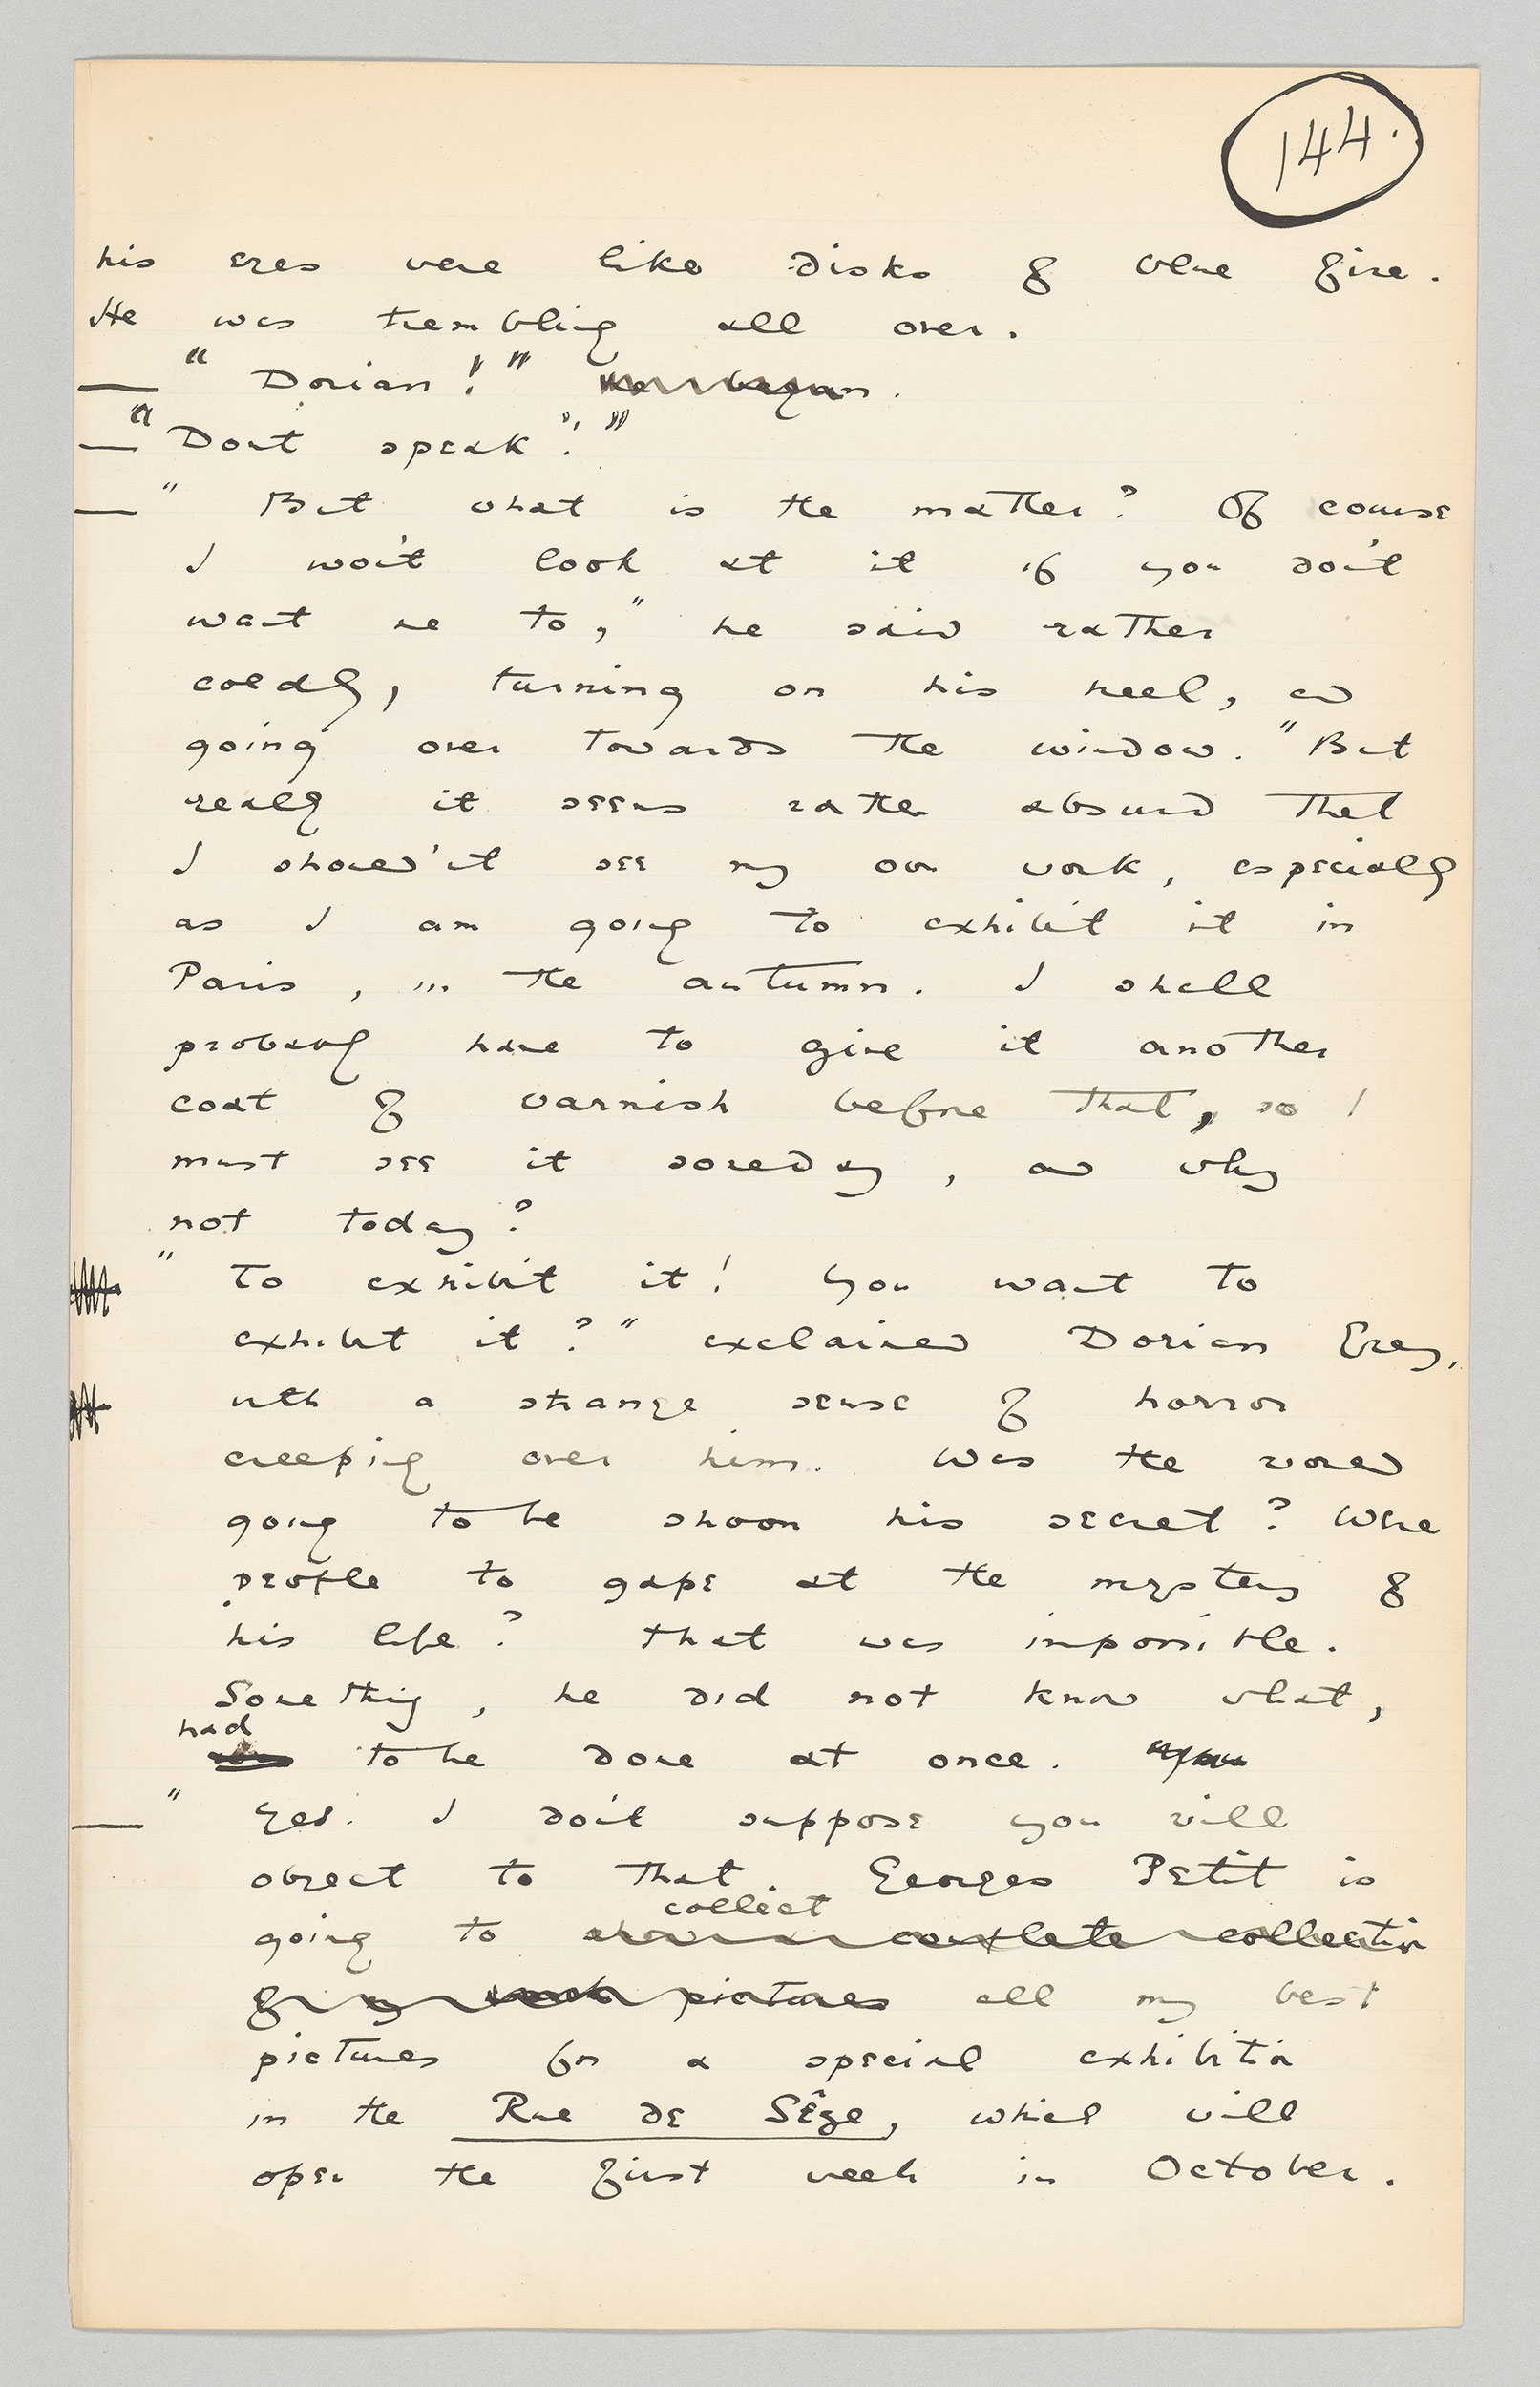 144.
his eyes were like disks of blue fire.
He was trembling all over.
— "Dorian!" he began.
— "Dont speak!"
— "But what is the matter? Of course
I wo'nt look at it if you do'nt
want me to," he said rather
coldly, turning on his heel, and
going over towards the window. "But
really it seems rather absurd that
I should'nt see my own work, especially
as I am going to exhibit it in
Paris, in the autumn. I shall
probably have to give it another
coat of varnish before that, so I
must see it someday, and why
not today?
"To exhibit it! You want to
exhibit it?" exclaimed Dorian Gray,
with a strange sense of horror
creeping over him. Was the world
going to be shown his secret? Were
people to gape at the mystery of
his life? That was impossible.
Something, he did not know what,
had
to be done at once.
— "Yes. I do'nt suppose you will
object to that. Georges Petit is
collect
going to show a complete collection
of my pictures all my best
pictures for a special exhibition
in the Rue de Sêze, which will
open the first week in October.